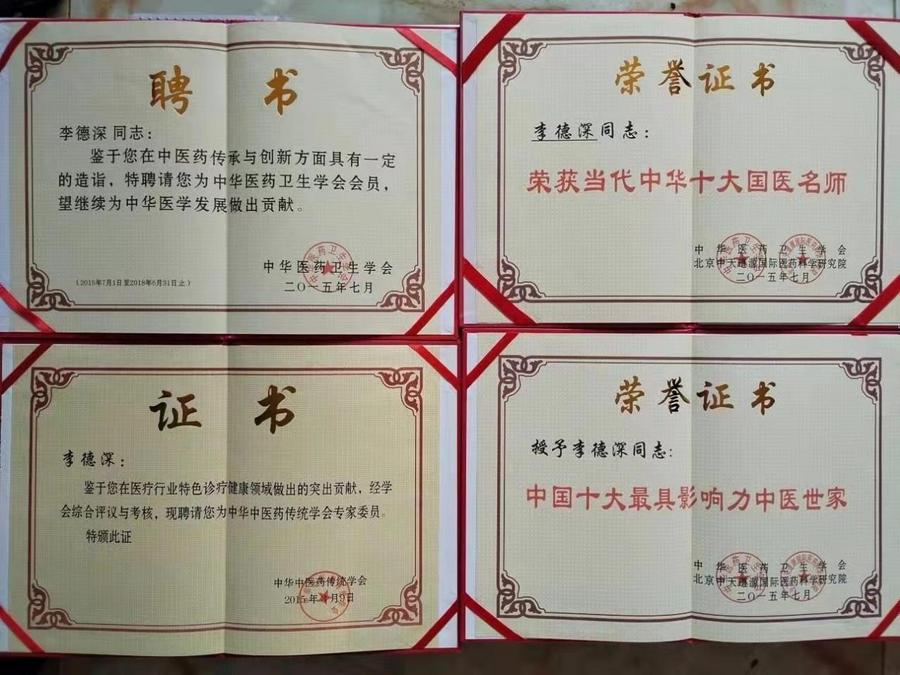 聘书
李德深 同志：
鉴于您在中医药传承与创新方面具有一定
的造诣，特聘请您为中华医药卫生学会会员，
望继续为中华医学发展做出贡献。
中华医药卫生学会
二〇一五年七月
（2015年7月1日至2018年6月31日止）
荣誉证书
李德深同志：
荣获当代中华十大国医名师
中华医药卫生学会
北京中天越源国际医药科学研究院
二〇一五年七月
证书
李德深：
鉴于您在医疗行业特色诊疗健康领域做出的突出贡献，经学
会综合评议与考核，现聘请您为中华中医药传统学会专家委员。
特颁此证
中华中医药传统学会
荣誉证书
授予李德深同志：
中国十大最具影响力中医世家
中华医药卫生学会
北京中天越源国际医药科学研究院
二〇一五年七月